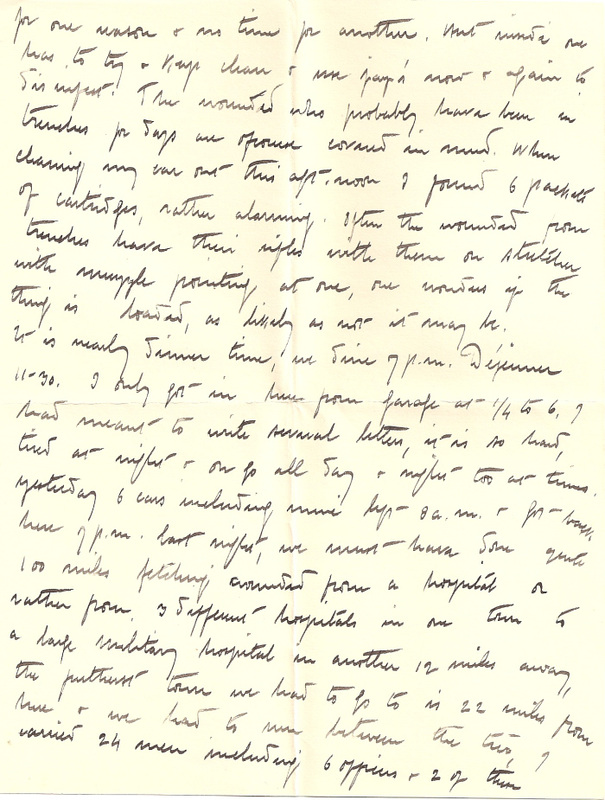 for one reason & no time for another. But inside one
has to try & keep clean & use jeyes now & again to
disinfect. The wounded who probably have been in
trenches for days are of course covered in mud. When
cleaning my car out this aft.noon I found 6 packets
of cartridges, rather alarming. Often the wounded from
trenches have their rifles with them on stretcher
with muzzle pointing at one, one wonders if the
thing is loaded, as likely as not it may be.
It is nearly dinner time, we dine 7 p.m. Déjeuner
11-30. I only got in here from garage at 1/4 to 6. I
had meant to write several letters, it is so hard,
tired at night & on go all day & night too at times.
yesterday 6 cars including mine left 8 a.m. & got back
here 7 p.m. last night, we must have done quite
100 miles fetching wounded from a hospital or
rather from 3 different hospitals in one town to
a large military hospital in another 12 miles away,
the furthest town we had to go to is 22 miles from
here & we had to run between the two, I
carried 24 men including 6 officers & 2 of them